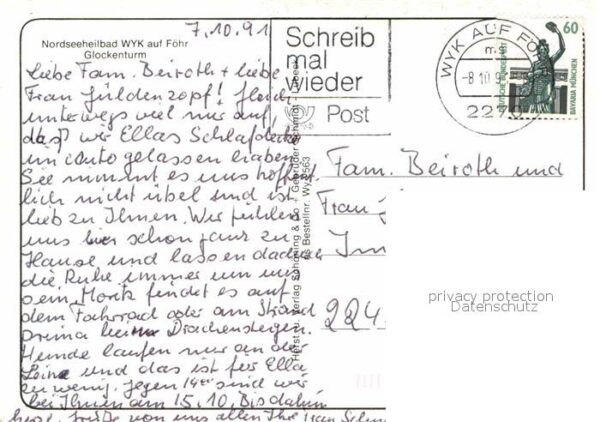 7.10.91
Nordseeheilbad WYK auf Föhr
Glockenturm
Liebe Fam. Beiroth + liebe
Frau Güldenzopf! Gleich
unterwegs viel mir auf,
daß wir Ellas Schlafdecke
im Auto gelassen haben.
Sie nimmt es uns hoffent
lich nicht übel und ist
lieb zu Ihnen. Wir fühlen
uns hier schon ganz zu
Hause und lassen
die Ruhe immer um uns
sein. Moritz findet es auf
dem Fahrrad oder am Strand
prima beim Drachensteigen.
Hunde laufen nur an der
Leine und das ist für Ella
zu wenig. Gegen 14 sind wir
bei Ihnen am 15.10. Bis dahin
Grüße von uns allen Ihre Frau
Schreib
mal
wieder
Post
WYK AUF FÖ
-8.10.9
2270
60
DEUTSCHE BUNDESPOST
BAVARIA MÜNCHEN
Verlag Schöning & Co + Gebrüder Schmidt
Bestellnr. Wy 2563
Fam. Beiroth und
Frau
224
privacy protection
Datenschutz